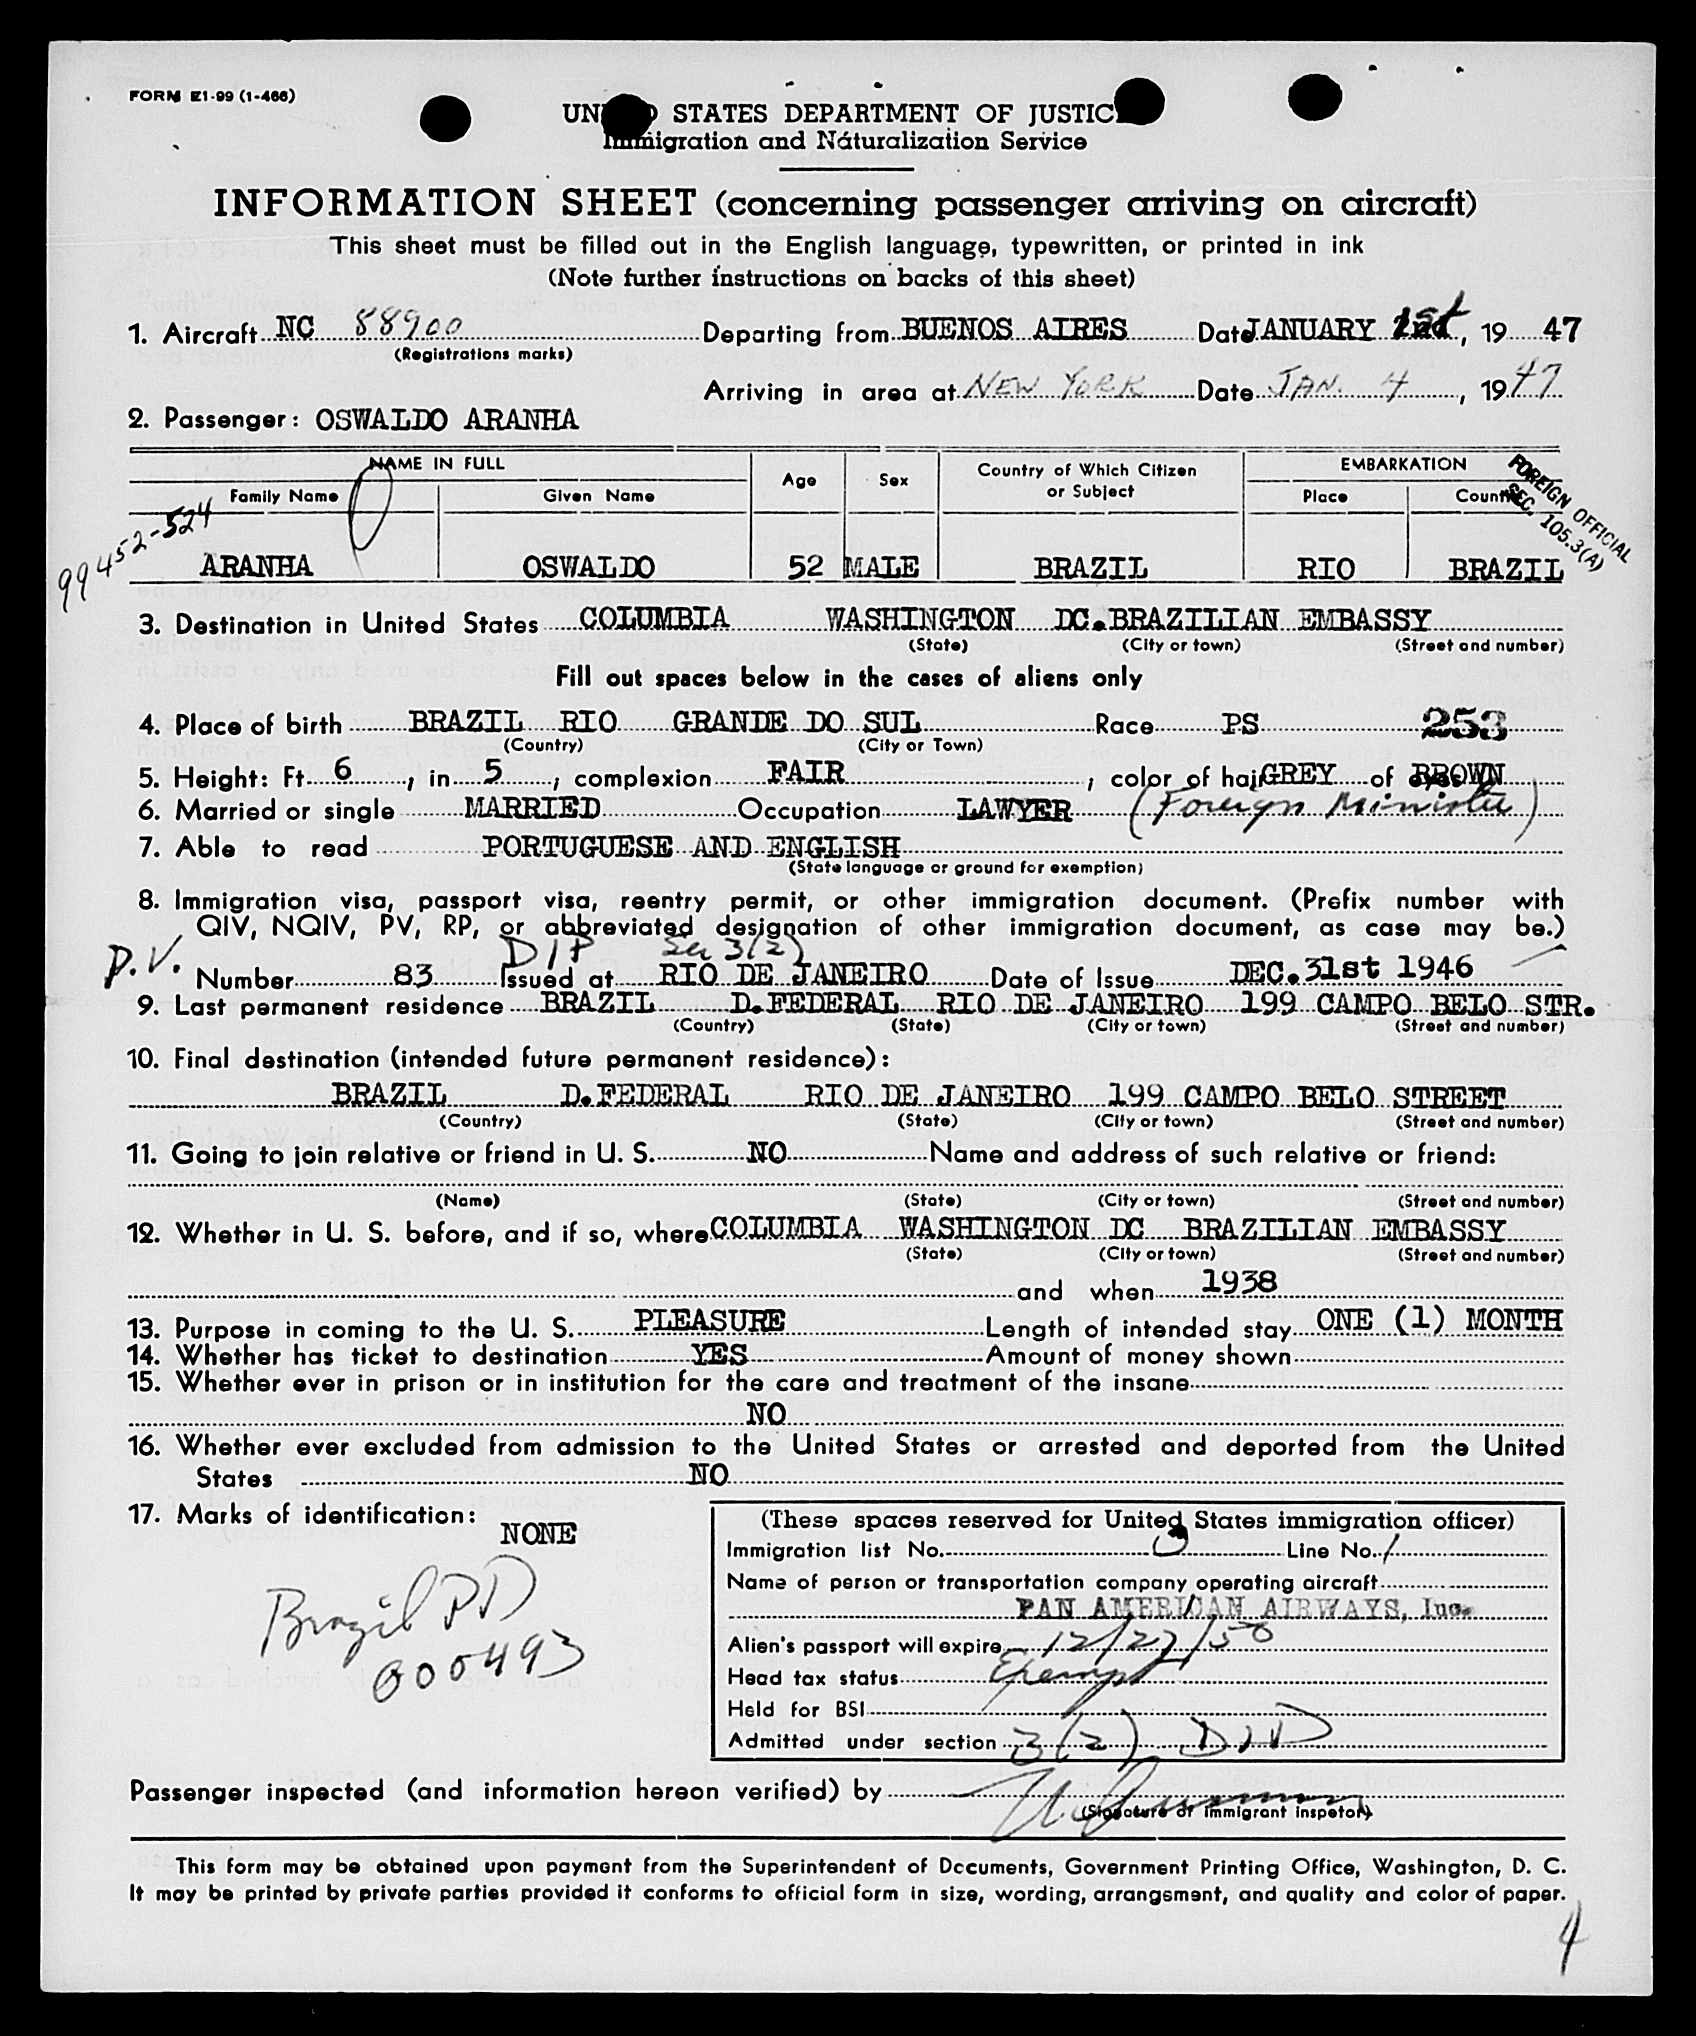 FORM E1-99 (1-466)
UNITED STATES DEPARTMENT OF JUSTICE
Immigration and Naturalization Service
INFORMATION SHEET (concerning passenger arriving on aircraft)
This sheet must be filled out in the English language, typewritten, or printed in ink
(Note further instructions on backs of this sheet)
1. Aircraft NC 88900 Departing from BUENOS AIRES Date JANUARY 1st, 19 47
(Registrations marks)
Arriving in area at NEW YORK Date JAN. 4, 19 47
2. Passenger: OSWALDO ARANHA
NAME IN FULL Age Sex Country of Which Citizen or Subject EMBARKATION
Family Name Given Name Place Country
FOREIGN OFFICIAL
SEC. 105.3(A)
99452-524
ARANHA OSWALDO 52 MALE BRAZIL RIO BRAZIL
3. Destination in United States COLUMBIA WASHINGTON DC. BRAZILIAN EMBASSY
(State) (City or town) (Street and number)
Fill out spaces below in the cases of aliens only
4. Place of birth BRAZIL RIO GRANDE DO SUL Race PS 253
(Country) (City or Town)
5. Height: Ft. 6, in. 5, complexion FAIR, color of hair GREY of eyes BROWN
6. Married or single MARRIED Occupation LAWYER (Foreign Minister)
7. Able to read PORTUGUESE AND ENGLISH
(State language or ground for exemption)
8. Immigration visa, passport visa, reentry permit, or other immigration document. (Prefix number with
QIV, NQIV, PV, RP, or abbreviated designation of other immigration document, as case may be.)
P.V. DIP Sec 3(2)
Number 83 Issued at RIO DE JANEIRO Date of Issue DEC. 31st 1946
9. Last permanent residence BRAZIL D.FEDERAL RIO DE JANEIRO 199 CAMPO BELO STR.
(Country) (State) (City or town) (Street and number)
10. Final destination (intended future permanent residence):
BRAZIL D.FEDERAL RIO DE JANEIRO 199 CAMPO BELO STREET
(Country) (State) (City or town) (Street and number)
11. Going to join relative or friend in U. S. NO Name and address of such relative or friend:
(Name) (State) (City or town) (Street and number)
12. Whether in U. S. before, and if so, where COLUMBIA WASHINGTON DC BRAZILIAN EMBASSY
(State) (City or town) (Street and number)
and when 1938
13. Purpose in coming to the U. S. PLEASURE Length of intended stay ONE (1) MONTH
14. Whether has ticket to destination YES Amount of money shown
15. Whether ever in prison or in institution for the care and treatment of the insane
NO
16. Whether ever excluded from admission to the United States or arrested and deported from the United
States NO
17. Marks of identification:
NONE
Brazil PD
000493
(These spaces reserved for United States immigration officer)
Immigration list No. 3 Line No. 1
Name of person or transportation company operating aircraft
PAN AMERICAN AIRWAYS, Inc.
Alien's passport will expire 12/27/50
Head tax status Exempt
Held for BSI
Admitted under section 3(2) DIP
Passenger inspected (and information hereon verified) by
(Signature of immigrant inspetor)
This form may be obtained upon payment from the Superintendent of Documents, Government Printing Office, Washington, D. C.
It may be printed by private parties provided it conforms to official form in size, wording, arrangement, and quality and color of paper.
4